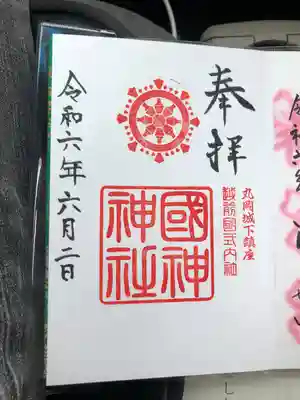 奉拝
丸岡城下鎮座
越前國式内社
國神
神社
令和六年六月二日